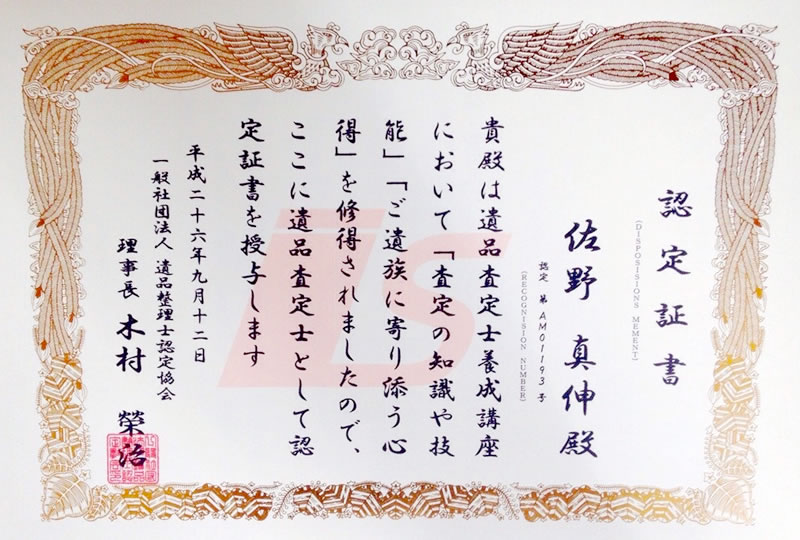 認定証書
(DISPOSISIONS MEMENT)
佐野 真伸殿
認定 第 AM01193 号
(RECOGNISION NUMBER)
貴殿は遺品査定士養成講座
において「査定の知識や技
能」「ご遺族に寄り添う心
得」を修得されましたので、
ここに遺品査定士として認
定証書を授与します
平成二十六年九月十二日
一般社団法人 遺品整理士認定協会
理事長 木村 榮治
is